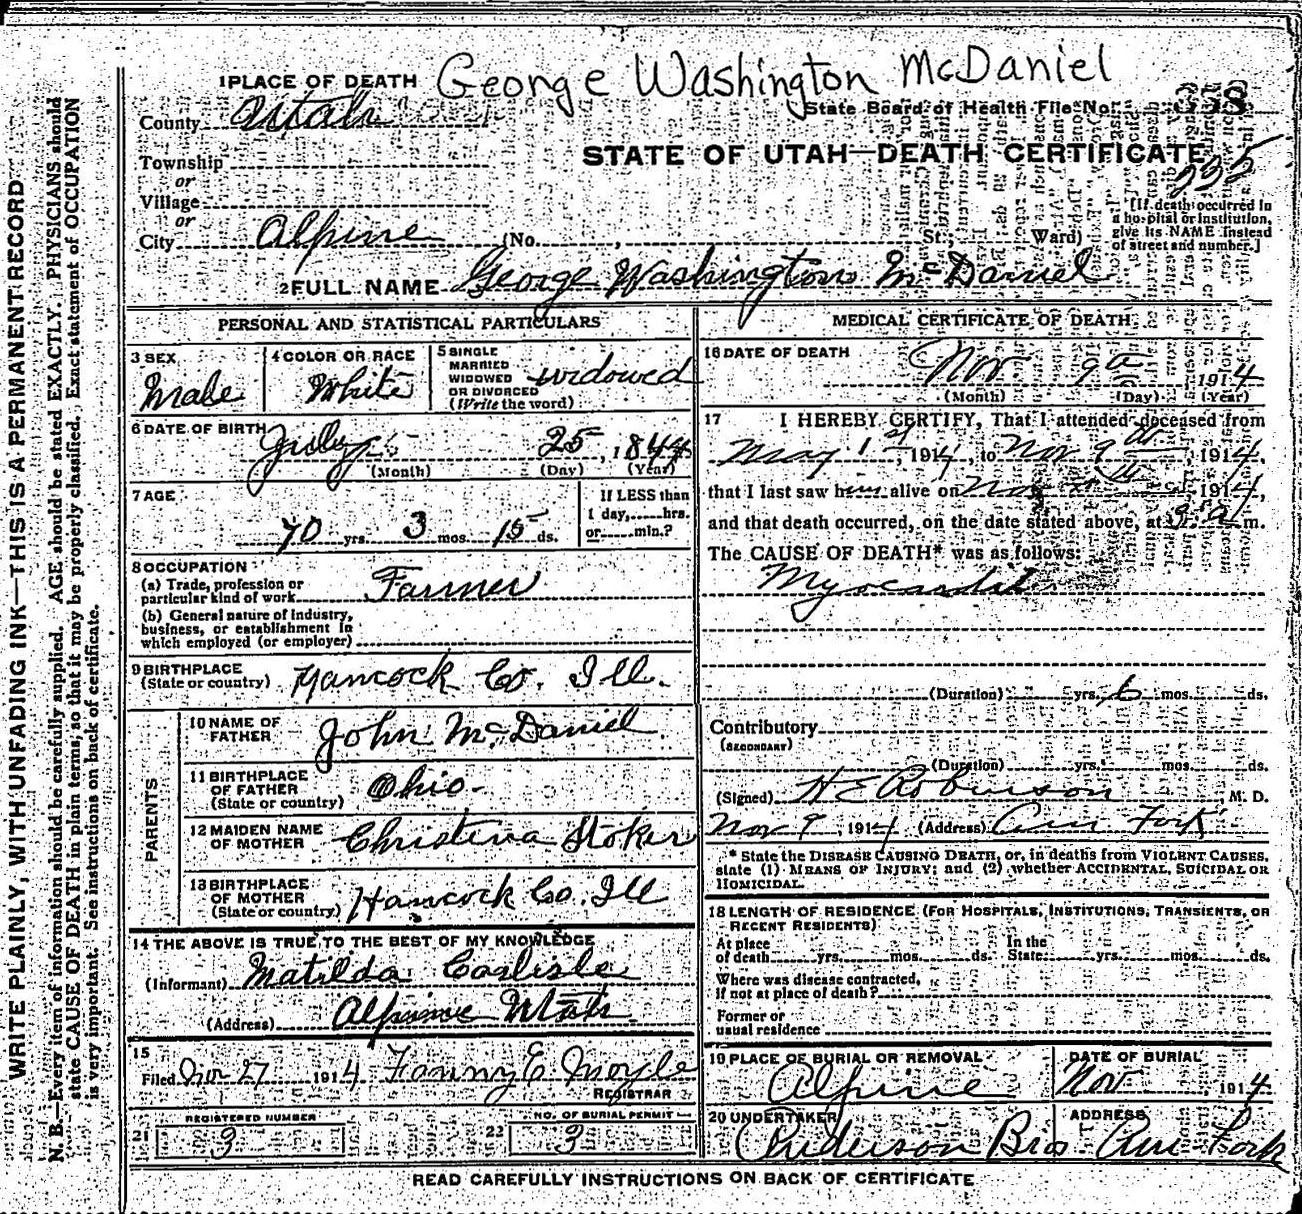 George Washington McDaniel
1 PLACE OF DEATH
State Board of Health File No. 338
County Utah
STATE OF UTAH—DEATH CERTIFICATE
225
Township
or
Village
or
City Alpine (No. , St., Ward)
[If death occurred in
a hospital or institution,
give its NAME instead
of street and number.]
2 FULL NAME George Washington McDaniel
PERSONAL AND STATISTICAL PARTICULARS
3 SEX
Male
4 COLOR OR RACE
White
5 SINGLE
MARRIED
WIDOWED
OR DIVORCED
(Write the word)
widowed
6 DATE OF BIRTH
July 25, 1844
(Month) (Day) (Year)
7 AGE
70 yrs. 3 mos. 15 ds.
If LESS than
1 day, hrs.
or min.?
8 OCCUPATION
(a) Trade, profession or
particular kind of work Farmer
(b) General nature of industry,
business, or establishment in
which employed (or employer)
9 BIRTHPLACE
(State or country) Hancock Co. Ill.
PARENTS
10 NAME OF
FATHER John McDaniel
11 BIRTHPLACE
OF FATHER
(State or country) Ohio
12 MAIDEN NAME
OF MOTHER Christena Stoker
13 BIRTHPLACE
OF MOTHER
(State or country) Hancock Co. Ill
14 THE ABOVE IS TRUE TO THE BEST OF MY KNOWLEDGE
(Informant) Matilda Carlisle
(Address) Alpine Utah
15
Filed Nov 27 1914 Fanny E. Moyle
REGISTRAR
REGISTERED NUMBER
21 3
NO. OF BURIAL PERMIT
22 3
MEDICAL CERTIFICATE OF DEATH
16 DATE OF DEATH
Nov 9th 1914
(Month) (Day) (Year)
17 I HEREBY CERTIFY, That I attended deceased from
May 1st, 1914, to Nov 9th 1914,
that I last saw him alive on Nov 1914,
and that death occurred, on the date stated above, at m.
The CAUSE OF DEATH* was as follows:
Myocardit
(Duration) yrs. 6 mos. ds.
Contributory
(SECONDARY)
(Duration) yrs. mos. ds.
(Signed) H E Robinson, M. D.
Nov 9, 1914 (Address) Am Fork
* State the DISEASE CAUSING DEATH, or, in deaths from VIOLENT CAUSES,
state (1) MEANS OF INJURY; and (2) whether ACCIDENTAL, SUICIDAL OR
HOMICIDAL.
18 LENGTH OF RESIDENCE (FOR HOSPITALS, INSTITUTIONS, TRANSIENTS, OR
RECENT RESIDENTS)
At place
of death yrs. mos. ds.
In the
State yrs. mos. ds.
Where was disease contracted,
if not at place of death?
Former or
usual residence
19 PLACE OF BURIAL OR REMOVAL
Alpine
DATE OF BURIAL
Nov 1914
20 UNDERTAKER
Anderson Bros
ADDRESS
Am Fork
READ CAREFULLY INSTRUCTIONS ON BACK OF CERTIFICATE
WRITE PLAINLY, WITH UNFADING INK—THIS IS A PERMANENT RECORD
N. B.—Every item of information should be carefully supplied. AGE should be stated EXACTLY. PHYSICIANS should
state CAUSE OF DEATH in plain terms, so that it may be properly classified. Exact statement of OCCUPATION
is very important. See instructions on back of certificate.